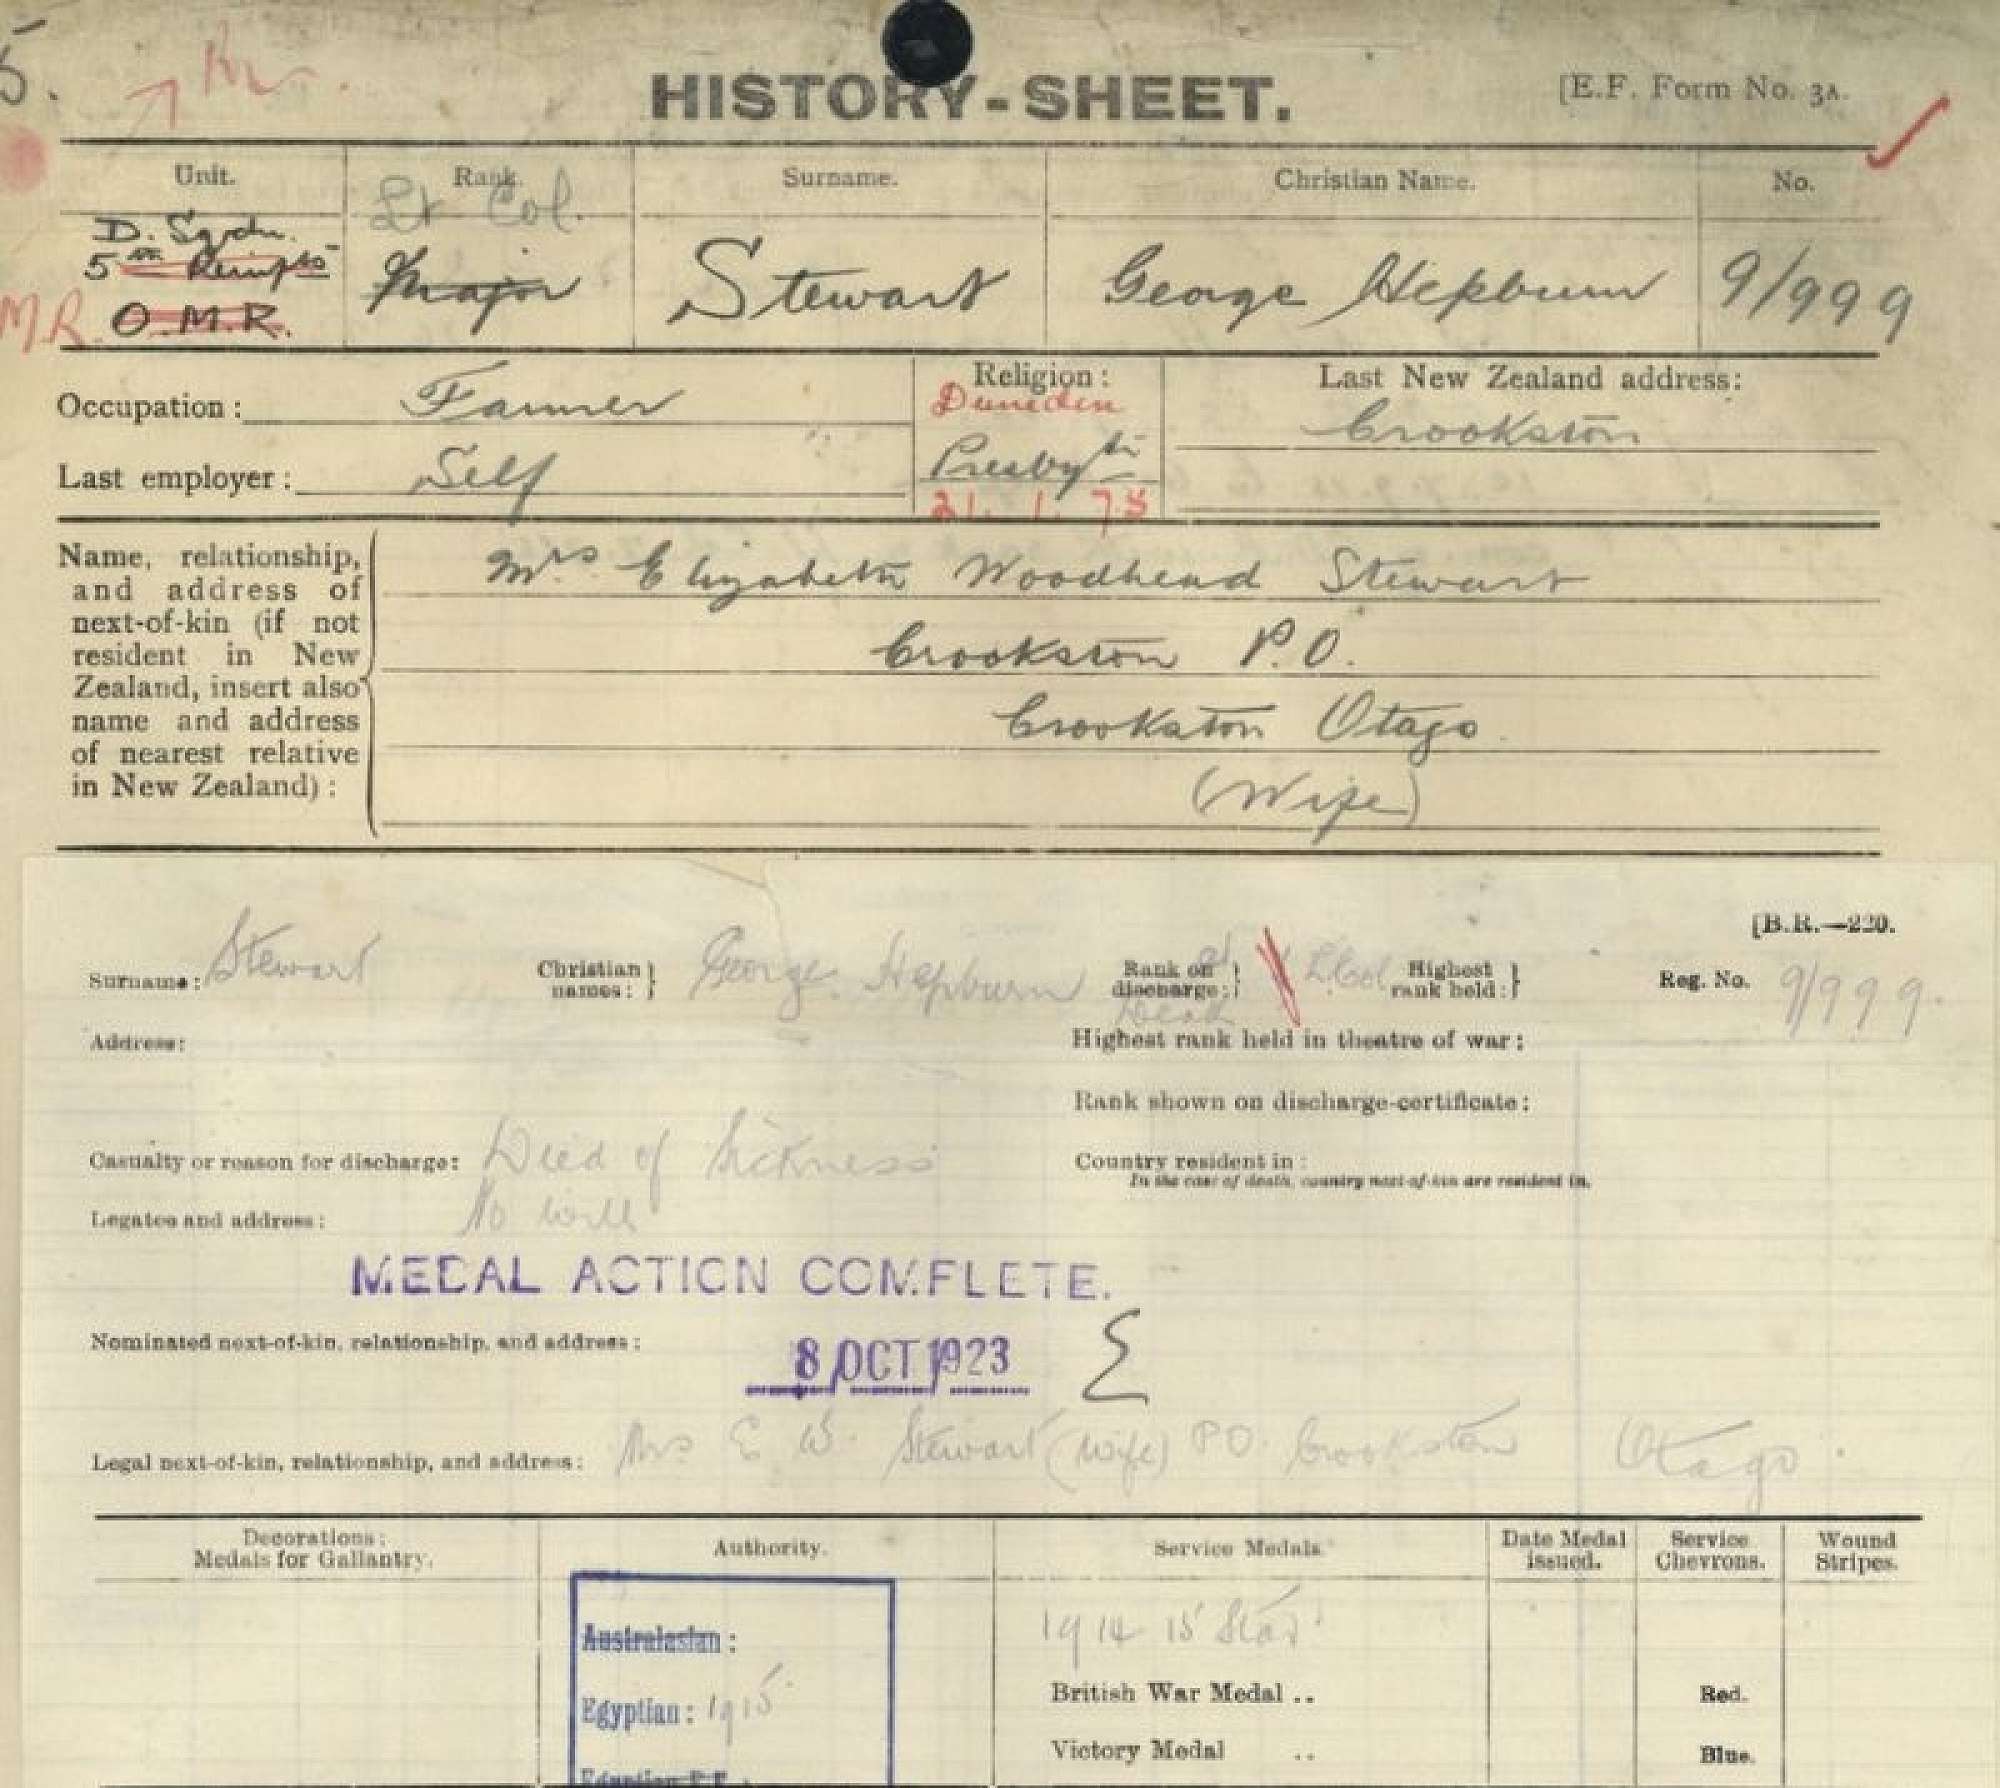 5.
HISTORY-SHEET.
[E.F. Form No. 3A.
Unit. Rank. Surname. Christian Name. No.
Lt Col.
D. Sqdn.
5th Reinfts Major Stewart George Hepburn 9/999
M.R. O.M.R.
Occupation: Farmer
Religion:
Dunedin
Presbytn
21. 1. 75
Last New Zealand address:
Crookston
Last employer: Self
Name, relationship,
and address of
next-of-kin (if not
resident in New
Zealand, insert also
name and address
of nearest relative
in New Zealand):
Mrs Elizabeth Woodhead Stewart
Crookston P.O.
Crookston Otago
(Wife)
[B.R.—220.
Surname: Stewart Christian names: George Hepburn Rank on discharge: Lt Col Highest rank held: Reg. No. 9/999.
Address:
Highest rank held in theatre of war:
Rank shown on discharge-certificate:
Casualty or reason for discharge: Died of Sickness
Country resident in:
In the case of death, country next-of-kin are resident in.
Legatee and address: No will
MEDAL ACTION COMPLETE.
Nominated next-of-kin, relationship, and address:
8 OCT 1923
Legal next-of-kin, relationship, and address: Mrs E W. Stewart (wife) P.O. Crookston Otago.
Decorations:
Medals for Gallantry.
Authority.
Service Medals.
Date Medal
issued.
Service
Chevrons.
Wound
Stripes.
Australasian:
1914 15 Star
Egyptian: 1915
British War Medal ..
Red.
Victory Medal ..
Blue.
Egyptian E.F.: